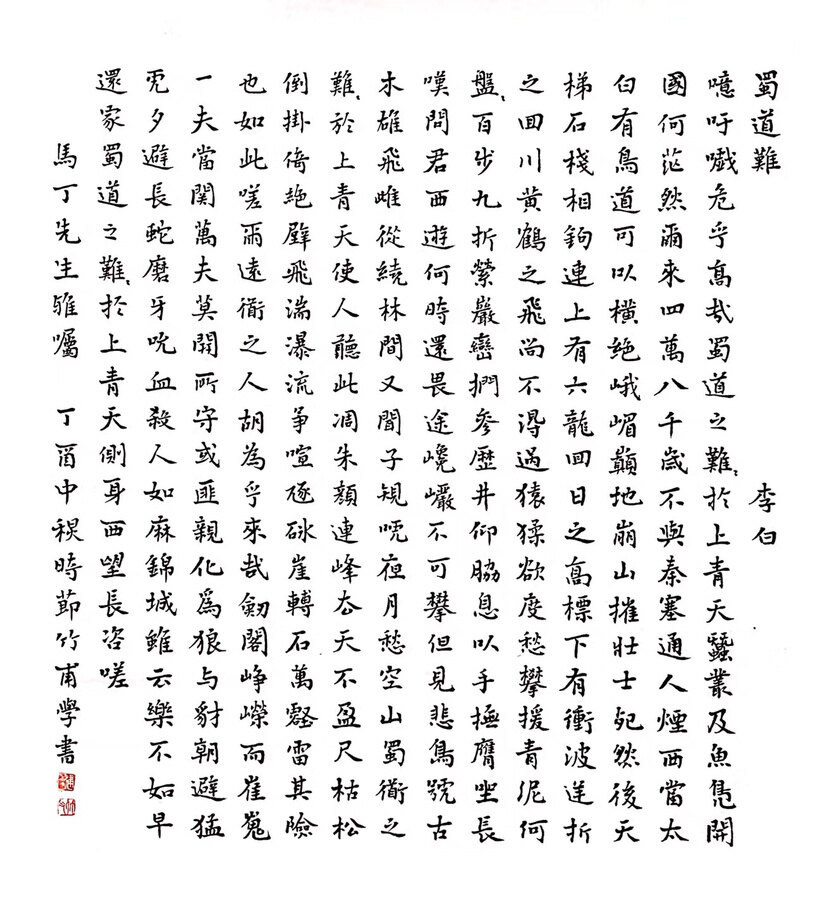 蜀道難 李白
噫吁嚱危乎高哉蜀道之難〻於上青天蠶叢及魚鳧開
國何茫然爾來四萬八千歲不與秦塞通人煙西當太
白有鳥道可以橫絕峨嵋巔地崩山摧壯士死然後天
梯石棧相鉤連上有六龍回日之高標下有衝波逆折
之回川黃鶴之飛尚不得過猿猱欲度愁攀援青泥何
盤〻百步九折縈巖巒捫參歷井仰脇息以手撫膺坐長
嘆問君西遊何時還畏途巉巖不可攀但見悲鳥號古
木雄飛雌從繞林間又聞子規啼夜月愁空山蜀道之
難〻於上青天使人聽此凋朱顏連峰去天不盈尺枯松
倒掛倚絕壁飛湍瀑流爭喧豗砯崖轉石萬壑雷其險
也如此嗟爾遠道之人胡為乎來哉劍閣崢嶸而崔嵬
一夫當關萬夫莫開所守或匪親化為狼与豺朝避猛
虎夕避長蛇磨牙吮血殺人如麻錦城雖云樂不如早
還家蜀道之難〻於上青天側身西望長咨嗟
馬丁先生雅囑 丁酉中秋時節竹甫學書